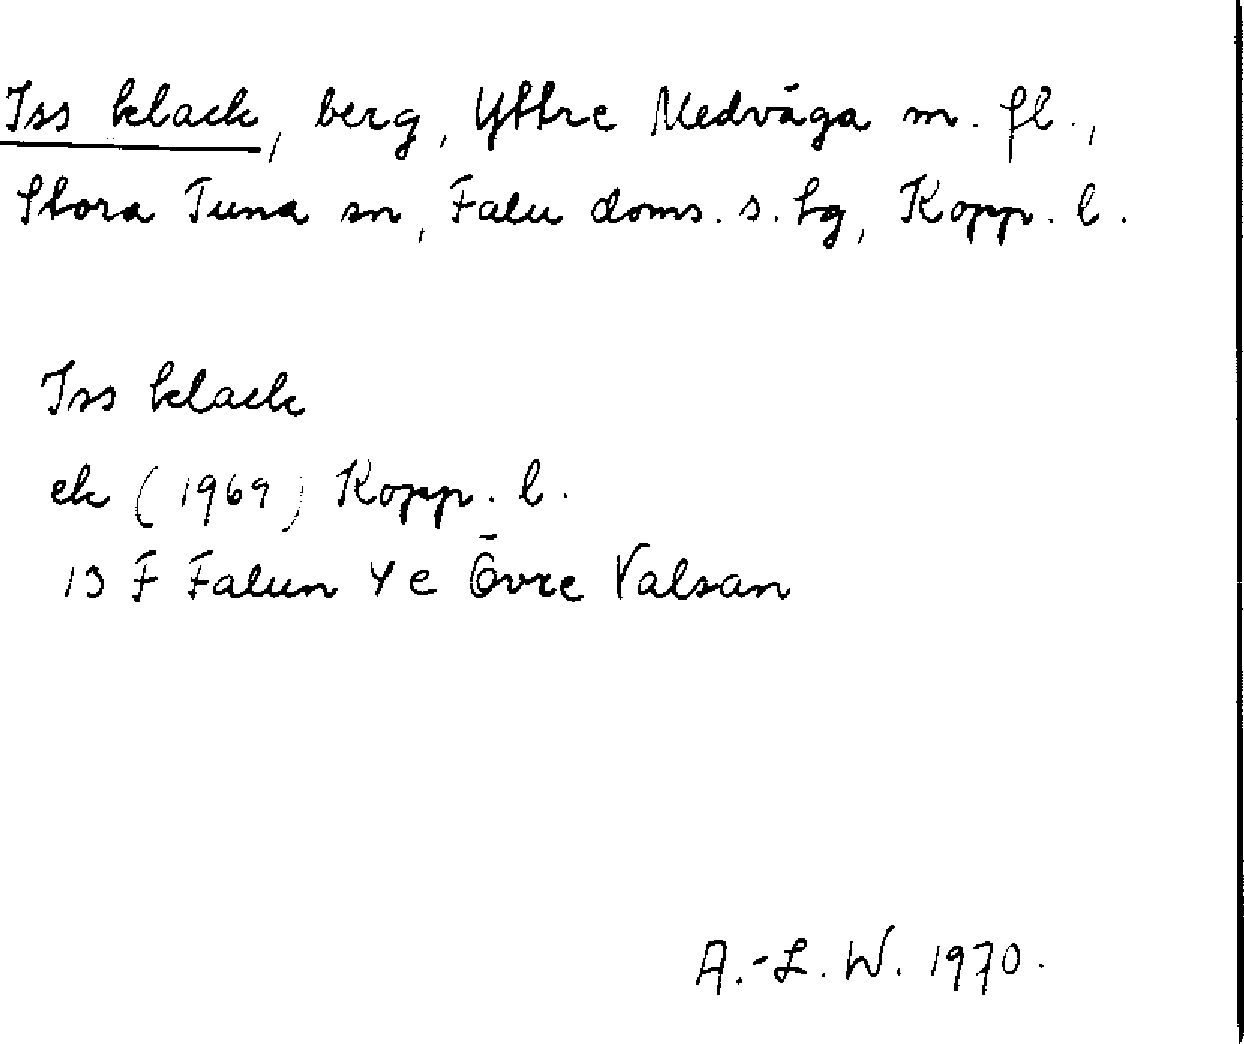 Iss klack, berg, Yttre Medväga m. fl.,
Stora Tuna sn, Falu doms. s. tg, Kopp. l.
Iss klack
ek (1969) Kopp. l.
13 F Falun 4 e Övre Valsan
A.-L. W. 1970.